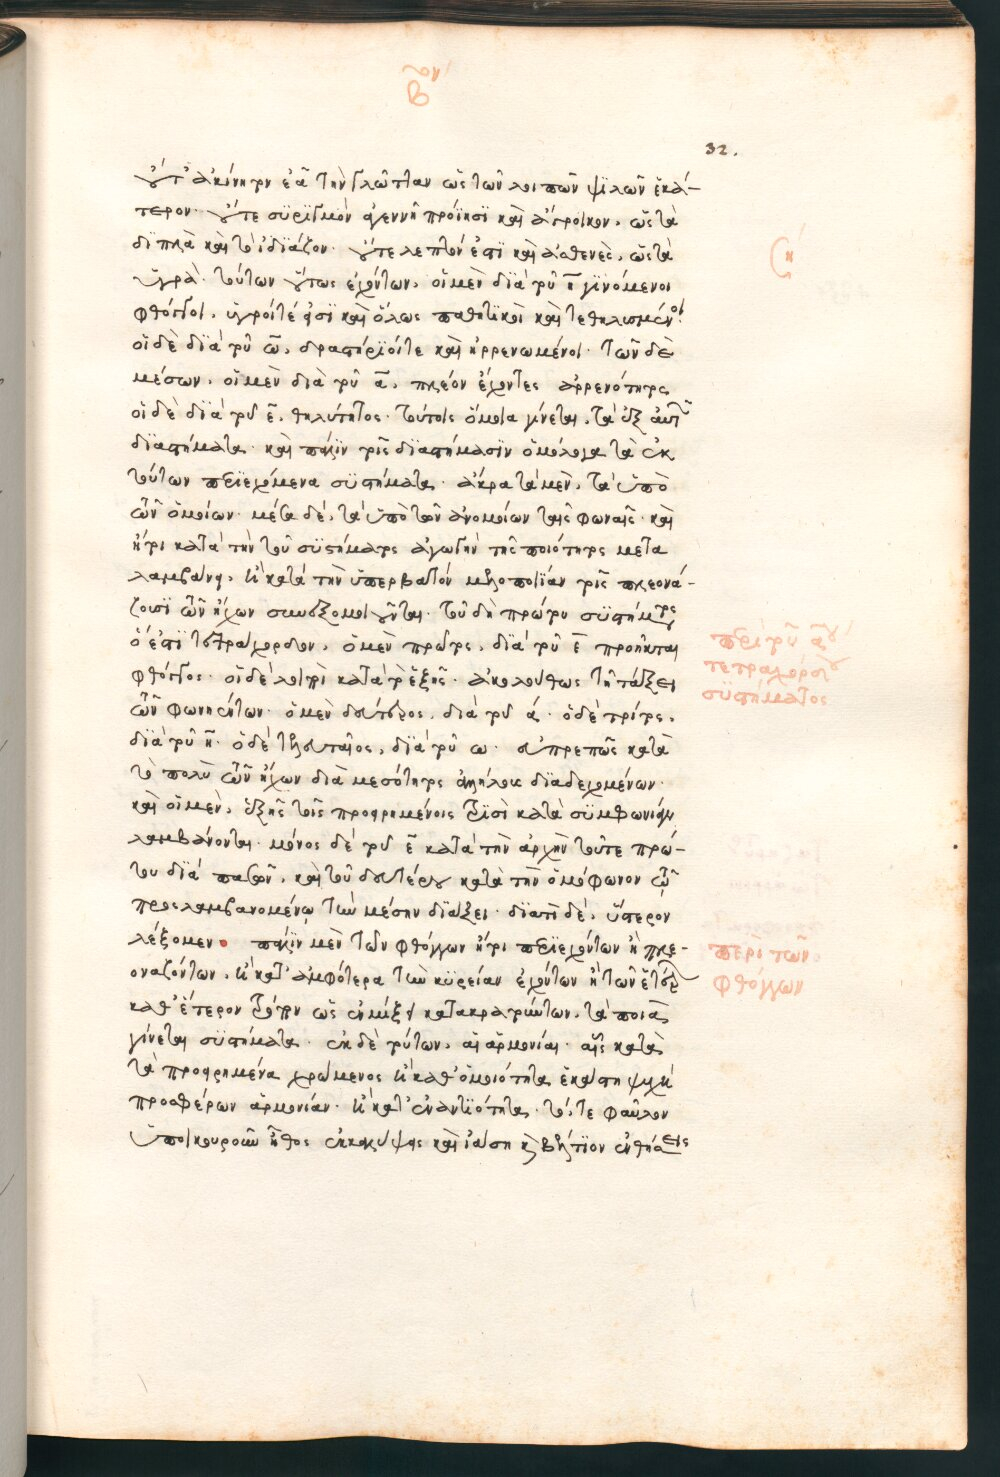 β´´ον
32.
οὔτ' ἀκίνητον ἐᾷ τὴν γλῶτταν ὡς τῶν λοιπῶν ψιλῶν ἑκά-
τερον· οὔτε συριγμὸν ἀγεννῆ προΐησι καὶ ἄγροικον, ὡς τὰ
διπλᾶ καὶ τὸ ἰδιάζον· οὔτε λεπτόν ἐστι καὶ ἀσθενὲς, ὡς τὰ
ὑγρά· τούτων οὕτως ἐχόντων, οἱ μὲν διὰ τοῦ η γινόμενοι
φθόγγοι, ὑγροί τέ εἰσι καὶ ὅλως παθητικοὶ καὶ τεθηλυσμένοι
οἱ δὲ διὰ τοῦ ω, δραστήριοί τε καὶ ἠρρενωμένοι· τῶν δὲ
μέσων, οἱ μὲν διὰ τοῦ α, πλέον ἔχοντες ἀρρενότητος
οἱ δὲ διὰ τοῦ ε, θηλύτητος· τούτοις ὅμοια γίνεται, τὰ ἐξ αὐτῶν
διαστήματα· καὶ πάλιν τοῖς διαστήμασιν ὁμόλογα τὰ ἐκ
τούτων περιεχόμενα συστήματα· ἄκρα τὰ μὲν, τὰ ὑπὸ
τῶν ὁμοίων· μέσα δὲ, τὰ ὑπὸ τῶν ἀνομοίων ταῖς φωναῖς· καὶ
ἤτοι κατὰ τὴν τοῦ συστήματος ἀγωγὴν τῆς ποιότητος μετα
λαμβάνει, ἢ κατὰ τὴν ὑπερβατὸν μελοποιΐαν τοῖς πλεονά-
ζουσι τῶν ἤχων συνεξομοιοῦνται· τοῦ δὴ πρώτου συστήματος
ὅ ἐστι τετράχορδον, ὁ μὲν πρῶτος, διὰ τοῦ ε προῆκται
φθόγγος· οἱ δὲ λοιποὶ κατὰ τὸ ἑξῆς ἀκολούθως τῇ τάξει
τῶν φωνηέντων· ὁ μὲν δεύτερος, διὰ τοῦ α· ὁ δὲ τρίτος,
διὰ τοῦ η· ὁ δὲ τελευταῖος, διὰ τοῦ ω· εὐπρεπῶς κατὰ
τὸ πολὺ τῶν ἤχων διὰ μεσότητος ἀλλήλους διαδεχομένων·
καὶ οἱ μὲν, ἑξῆς τοῖς προειρημένοις εἰσὶ κατὰ συμφωνίαν
λαμβάνονται· μόνος δὲ τοῦ ε κατὰ τὴν ἀρχὴν τοῦτε πρώ-
του διὰ πασῶν, καὶ τοῦ δευτέρου κατὰ τὴν ὁμόφωνον τῷ
προσλαμβανομένῳ τὴν μέσην διάξει· διατί δὲ, ὕστερον
λέξομεν· πάλιν μὲν τῶν φθόγγων ἤτοι περιεχόντων ἢ πλε-
οναζόντων, ἢ κατ' ἀμφότερα τὴν κυρείαν ἐχόντων ἢ τῶν ἑτέρων
καθ' ἕτερον τρόπον ὡς ἐν μίξει κατακρατούντων, τὰ ποιὰ
γίνεται συστήματα· ἐκ δὲ τούτων, αἱ ἁρμονίαι· αἷς κατὰ
τὰ προειρημένα χρώμενος ἢ καθ' ὁμοιότητα ἑκάστῃ ψυχῇ
προσφέρων ἁρμονίαν· ἢ κατ' ἐναντιότητα· τό, τε φαῦλον
ὑποικουροῦν ἦθος ἐκκαλύψεις καὶ ἰάσῃ καὶ βέλτιον ἐνθήσεις
η
περὶ τοῦ αου
τετραχόρδου
συστήματος
περὶ τῶν
φθόγγων